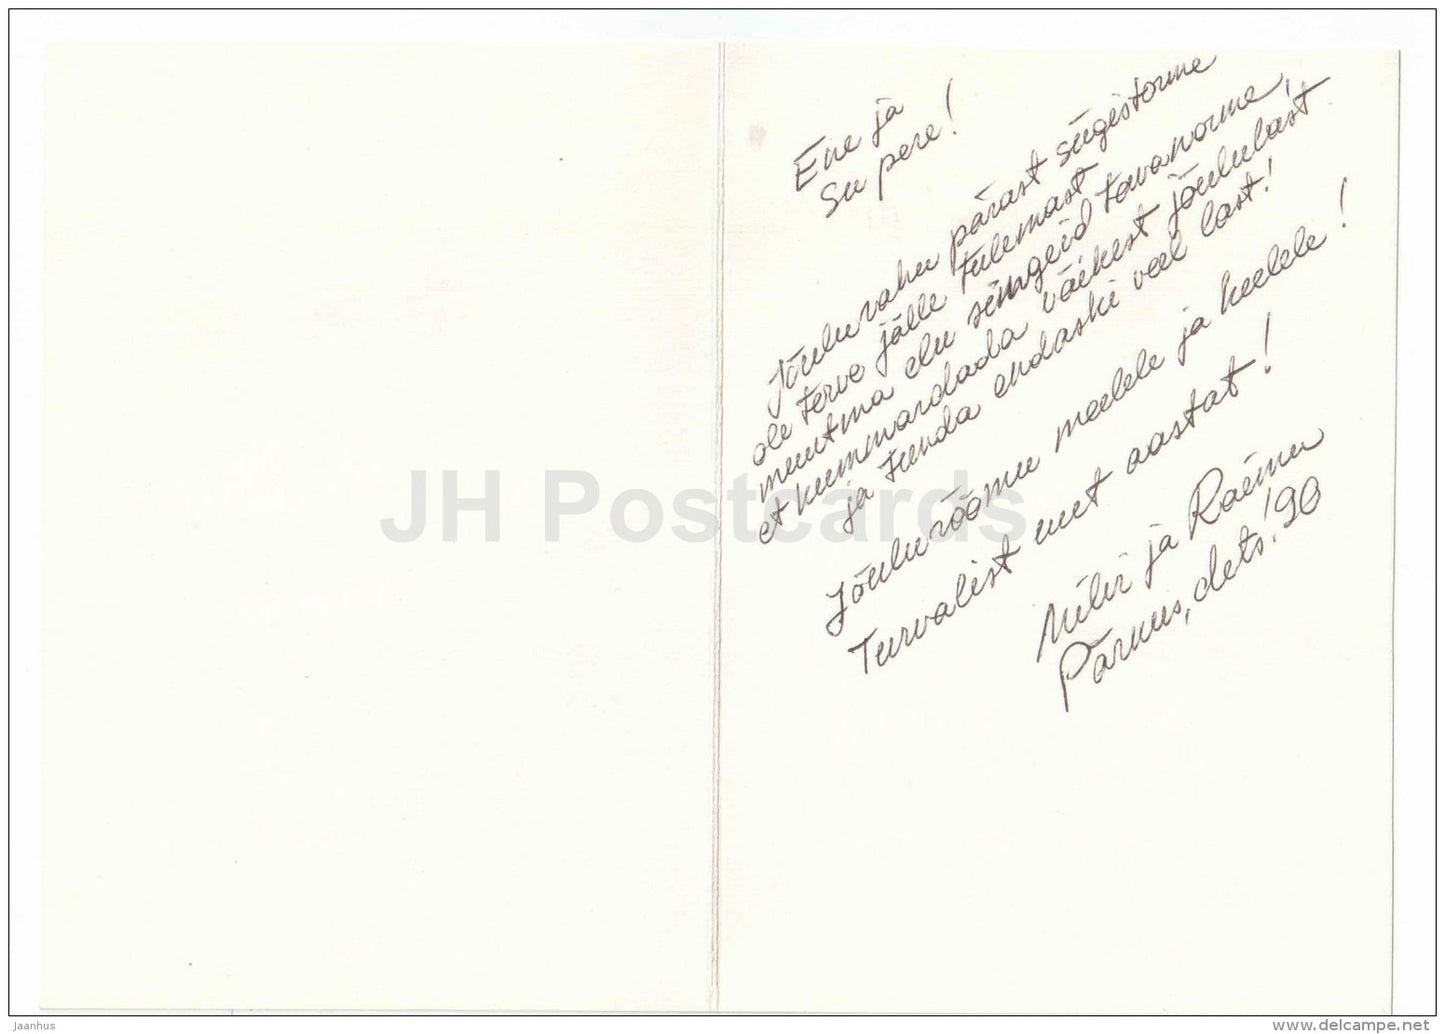 Ene ja
Su pere!
Jõulurahu pärast sügistorme
ole terve jälle tulemast
muutma elu süngeid tavanorme,
et kummardada väikest jõululast
ja tunda endaski veel last!
Jõulurõõmu meelele ja keelele!
Turvalist uut aastat!
Milvi ja Raimu
Pärnus, dets.'90
JH Postcards
jaanhus
www.delcampe.net